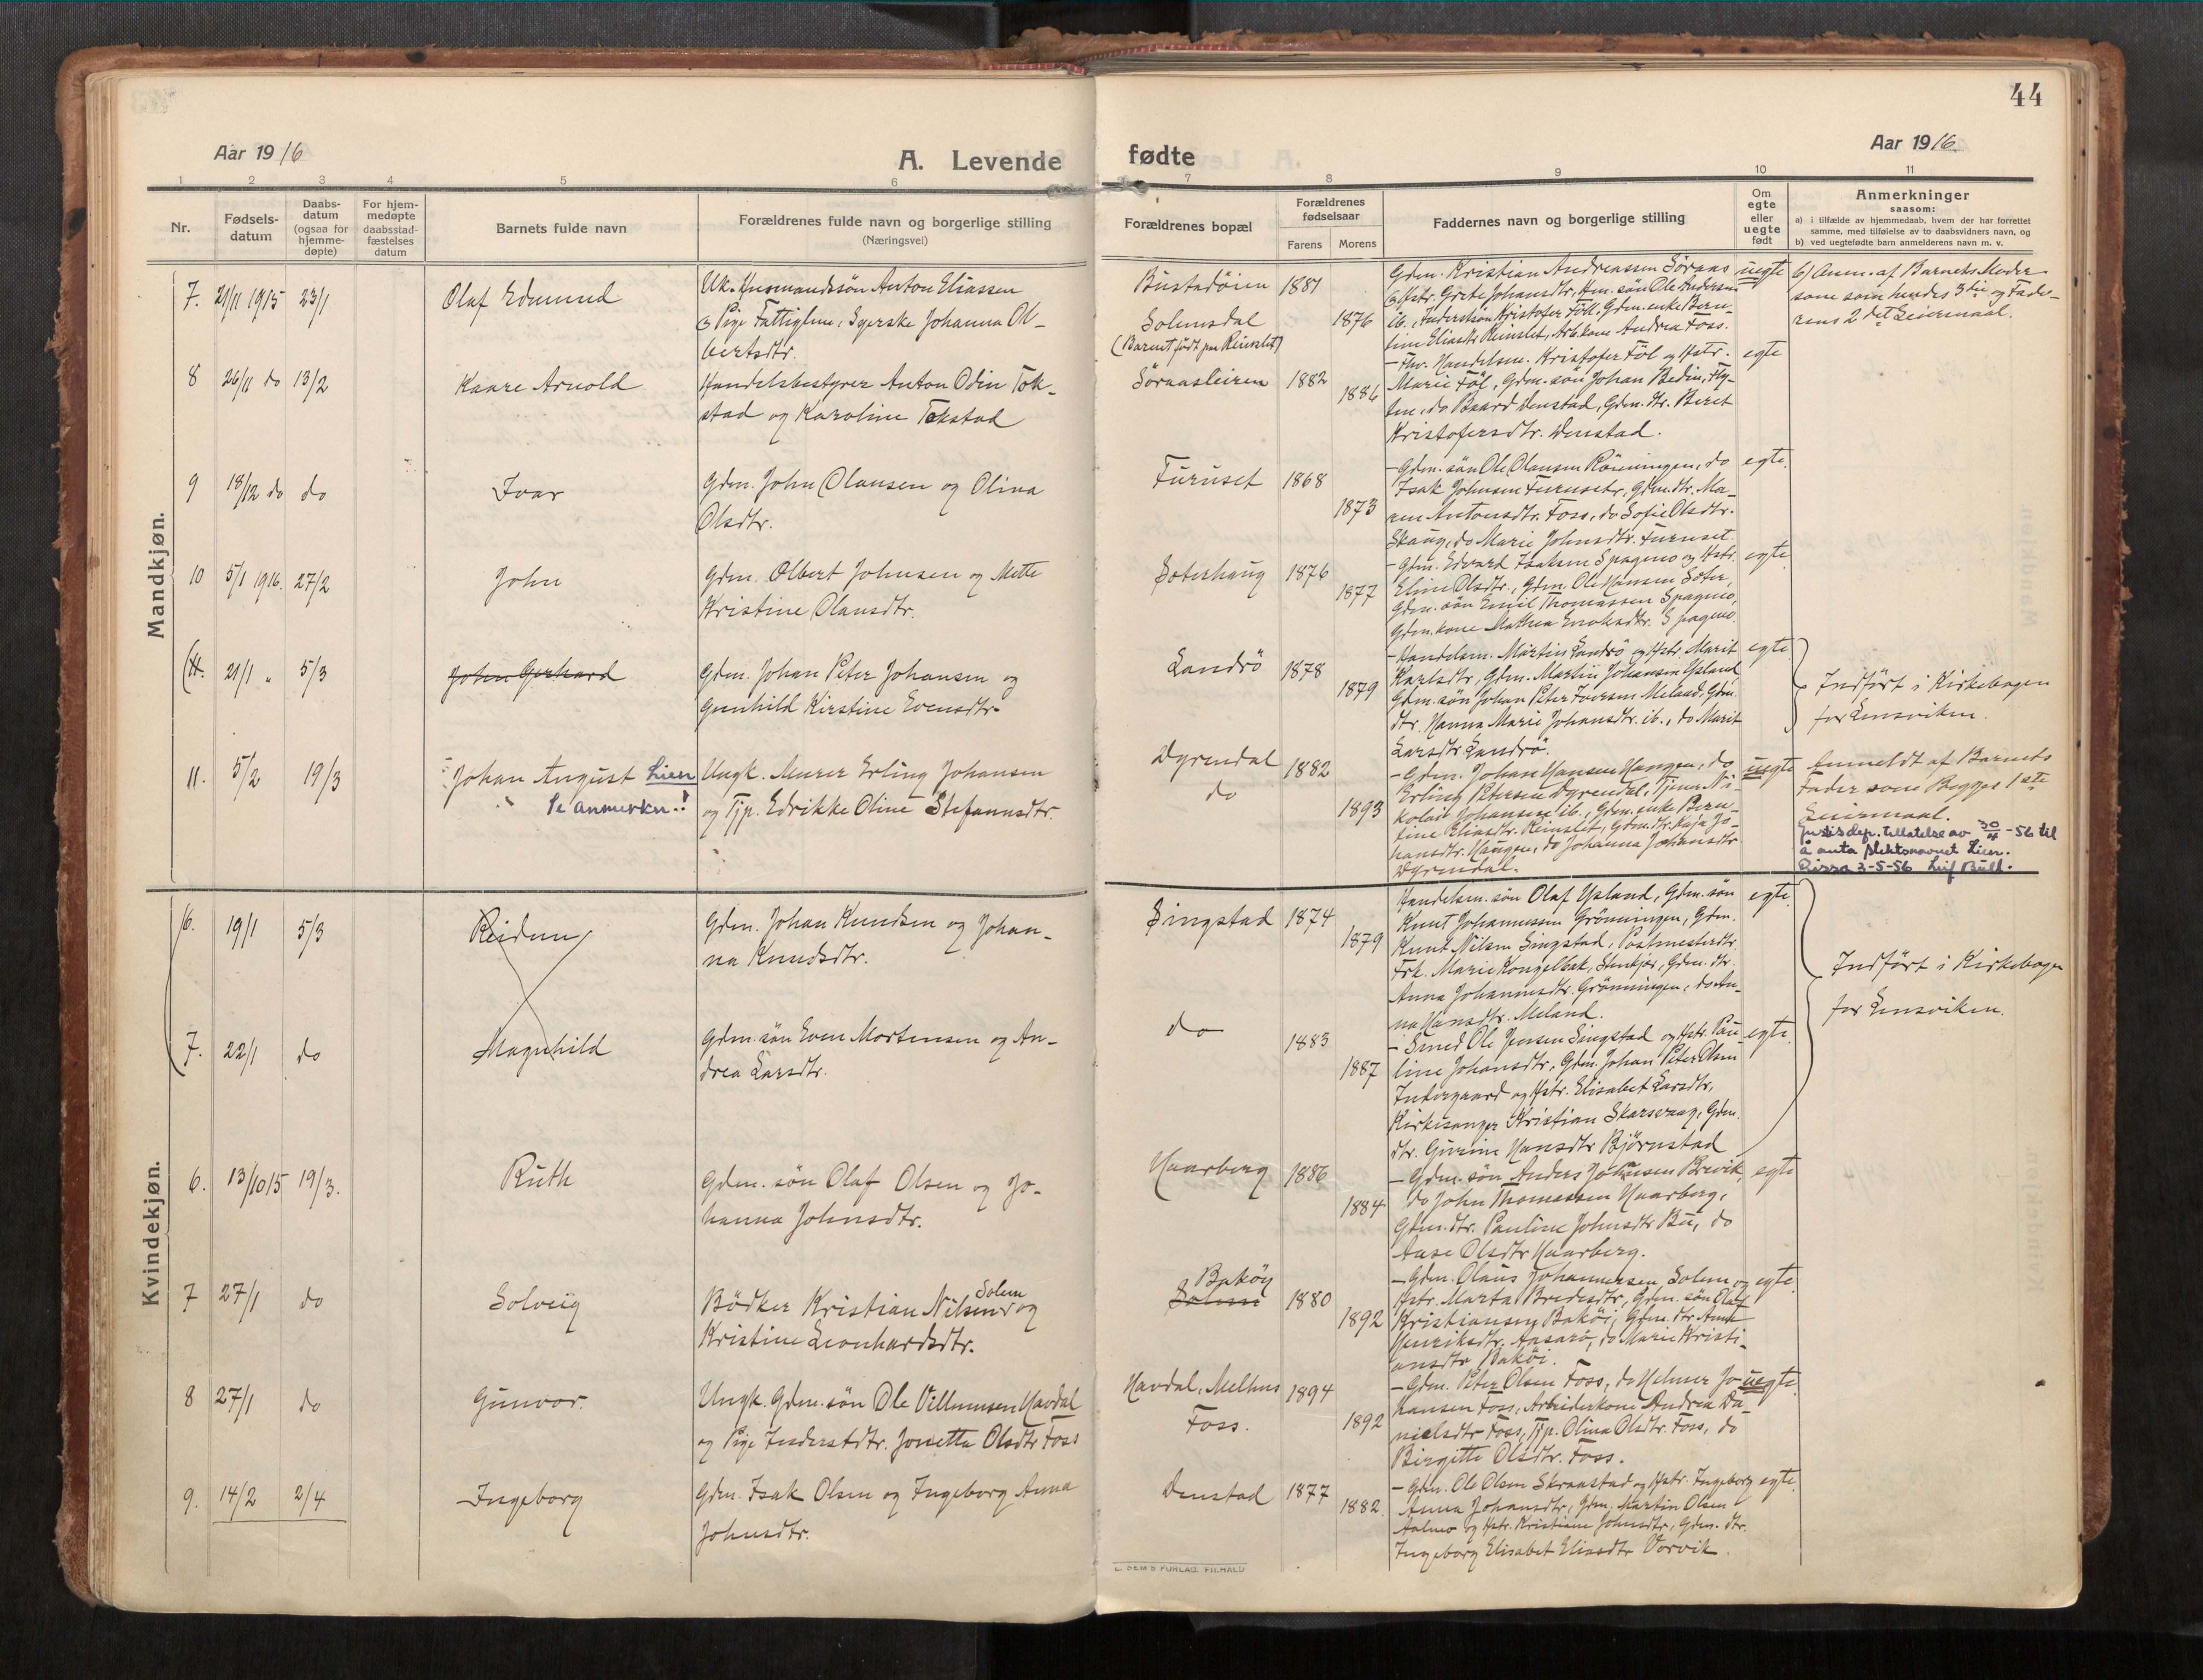 44
Aar 1916
A. Levende
fødte
Aar 1916.
1 2 3 4 5 6
7 8 9 10 11
Nr.
Fødsels-
datum
Daabs-
datum
(ogsaa for
hjemme-
døpte)
For hjem-
medøpte
daabsstad-
fæstelses
datum
Barnets fulde navn
Forældrenes fulde navn og borgerlige stilling
(Næringsvei)
Forældrenes bopæl
Forældrenes
fødselsaar
Farens Morens
Faddernes navn og borgerlige stilling
Om
egte
eller
uegte
født
Anmerkninger
saasom:
a) i tilfælde av hjemmedaab, hvem der har forrettet
samme, med tilføielse av to daabsvidners navn, og
b) ved uegtefødte barn anmelderens navn m. v.
Mandkjøn.
7. 21/11 1915 23/1
Olaf Edmund
Uk. Husmandssøn Anton Eliassen
Pige Fattiglem: Syerske Johanna Ol-
bertsdtr.
Bustadöien 1881
Solemsdal 1876
(Barnet født paa Reinslet)
Gdm. Kristian Andreassen Söraas
Hstr. Grete Johansdtr, Hm. søn Ole Andersen
ib., Inderstsøn Kristofer Föll, Gdm. enke Bern-
tine Eliasdtr Reinslet, Arb.kone Andrea Foss.
uegte
b) Anm. af Barnets Moder
som som hendes 3die og Fade-
rens 2det Leiermaal.
8 26/11 do 13/2
Kaare Arnold
Handelsbestyrer Anton Odin Tok-
stad og Karoline Tokstad
Söraasleiren 1882
1886
- Fhv. Handelsm. Kristofer Föl og Hstr.
Marie Föl, Gdm. søn Johan Bedin, Fly-
ten, do Baard Denstad, Gdm. dtr. Beret
Kristofersdtr. Denstad.
egte
9 18/12 do do
Ivar
Gdm. John Olausen og Olina
Olsdtr.
Furuset 1868
1873
- Gdm. søn Ole Olausen Rönningen, do
Isak Johnsen Furuset, Gdm. dtr. Ma-
ren Antonsdtr. Foss, do Sofie Olsdtr.
Skaug, do Marie Johnsdtr. Furuset.
egte.
10 5/1 1916. 27/2
John
Gdm. Olbert Johnsen og Mette
Kristine Olausdtr.
Soterhaug 1876
1877
- Gdm. Edvard Isaksen Spagmo og Hstr.
Eline Olsdtr., Gdm. Ole Hansen Soter,
Gdm. søn Emil Thomassen Spagmo,
Gdm. kone Mathea Enoksdtr. Spagmo.
egte.
(11. 21/1 " 5/3
John Gerhard
Gdm. Johan Peter Johansen og
Gunhild Kirstine Evensdtr.
Landrö 1878
1879
- Handelsm. Martin Landrö og Hstr. Marit
Karlsdtr, Gdm. Martin Johansen Ysland
Gdm. søn Johan Peter Iversen Meland, Gdm.
dtr. Hanna Marie Johansdtr. ib., do Marit
Larsdtr Landrö.
egte.
Indført i Kirkebogen
for Lensviken.
11. 5/2 19/3
Johan August Lien
Se anmerkn.!
Ungk. Murer Erling Johansen
og Tjp. Edrikke Oline Stefanusdtr.
Dyrendal 1882
do 1893
- Gdm. Johan Hansen Haugen, do
Erling Petersen Dyrendal, Tjener Ni-
kolai Johansen ib., Gdm. enke Bern-
tine Eliasdtr. Reinslet, Gdm. dtr. Kaja Jo-
hansdtr. Haugen, do Johanna Johansdtr
Dyrendal.
uegte
Anmeldt af Barnets
Fader som Begges 1ste
Leiermaal.
Justisdep. tillatelse av 30/4 -56 til
å anta slektsnavnet Lien.
Rissa 3-5-56 Leif Bull.
Kvindekjøn.
(6. 19/1 5/3
Reidun
Gdm. Johan Knudsen og Johan-
na Knudsdtr.
Singstad 1874
1879
Handelsm. søn Olaf Ysland, Gdm. søn
Knut Johannessen Grönningen, Gdm.
Knut Nilsen Singstad, Postmesterdtr.
Frk. Marie Kongelbak, Stenkjær, Gdm. dtr.
Anna Johannesdtr. Grönningen, do An-
na Hansdtr. Meland.
egte.
Indført i Kirkebogen
for Lensviken.
(7. 22/1 do
Magnhild
Gdm. søn Even Mortensen og An-
drea Larsdtr.
do 1883
1887
- Smed Ole Jensen Singstad og Hstr. Pau-
line Johansdtr., Gdm. Johan Peter Olsen
Indergaard og Hstr. Elisabet Larsdtr,
Kirkesanger Kristian Skarsvaag, Gdm.
dtr. Gurine Hansdtr Bjørnstad
egte.
6. 13/10 15 19/3.
Ruth
Gdm. søn Olaf Olsen og Jo-
hanna Johnsdtr.
Haarberg 1886
1884
- Gdm. søn Anders Johansen Brevik,
do John Thomassen Haarberg,
Gdm. dtr. Pauline Johnsdtr Bu, do
Aase Olsdtr Haarberg.
egte
7 27/1 do
Solveig
Bödker Kristian Nilsen Solem og
Kristine Leonhardsdtr.
Bakøy
Solem 1880
1892
- Gdm. Olaus Johannessen Solem og
Hstr. Marta Bredesdtr, Gdm. søn Olaf
Kristiansen Baköi, Gdm. dtr. Anna
Henriksdtr. Aasarö, do Marie Kristi-
ansdtr Baköi.
egte.
8 27/1 do
Gunvor.
Ungk. Gdm. søn Ole Villumsen Havdal
og Pige Inderstdtr. Jonetta Olsdtr Foss
Havdal, Melhus 1894
Foss. 1892
- Gdm. Peter Olsen Foss, do Helmer Jo-
hansen Foss, Arbeiderkone Andrea Da-
nielsdtr Foss, Tjp. Olina Olsdtr. Foss, do
Birgitte Olsdtr. Foss.
uegte.
9. 14/2 2/4
Ingeborg
Gdm. Isak Olsen og Ingeborg Anna
Johnsdtr.
Denstad 1877
1882.
- Gdm. Ole Olsen Skraastad og Hstr. Ingeborg
Anna Johansdtr., Gdm. Martin Olsen
Aalmo og Hstr. Kristiane Johnsdtr, Gdm. dtr.
Ingeborg Elisabet Eliasdtr Vorvik.
egte.
E. SEM'S FORLAG, FR.HALD